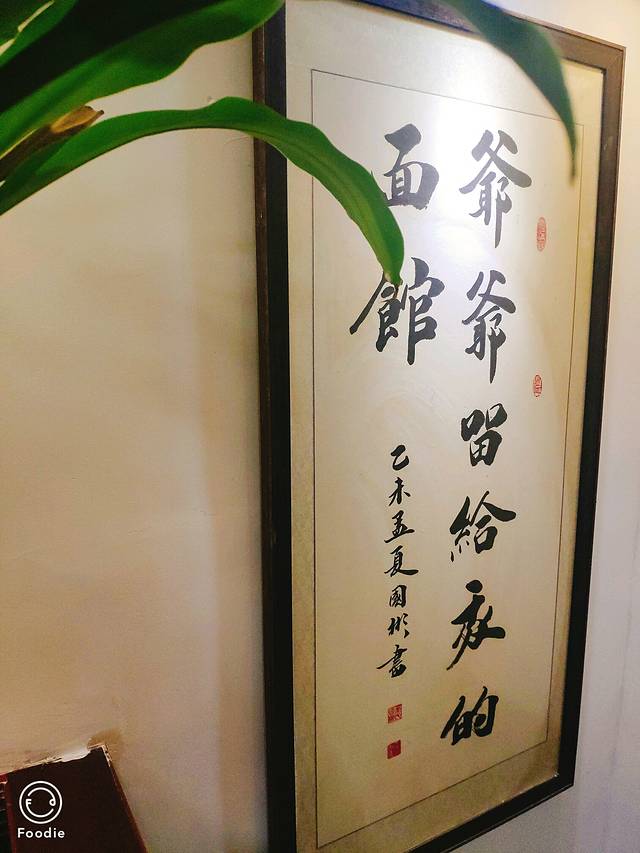 爺爺留給我的
面館
乙未孟夏國彬書
Foodie